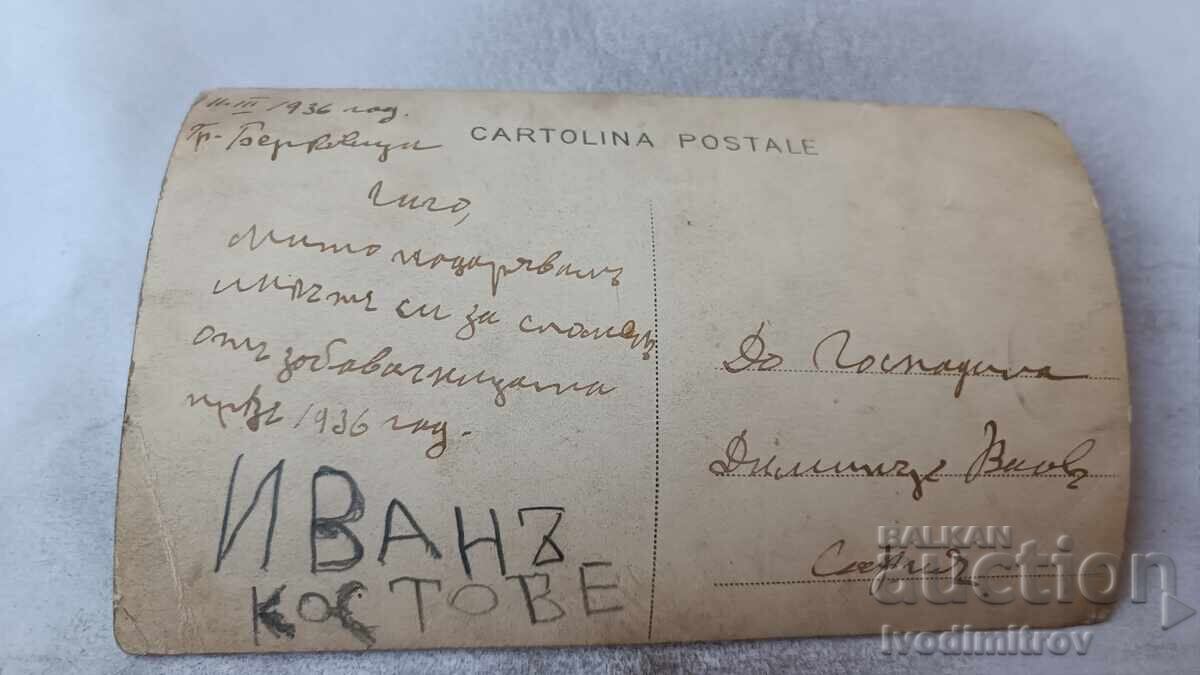 11-III 1936 год.
Гр. Берковица
CARTOLINA POSTALE
Гиго,
подарявамъ
си за споменъ
отъ забавачницата
презъ 1936 год.
ИВАНЪ
КОСТОВЕ
До Господина
Димитъръ
София
BALKAN
auction
Ivodimitrov